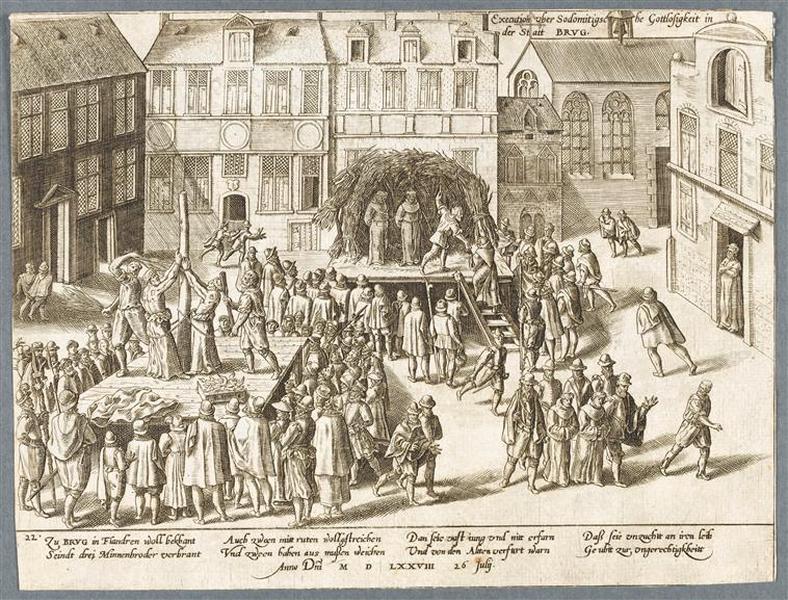 Execution vber Sodomitigsc he Gottlosigkeit in
der Statt BRVG.
22 Zu BRVG in Flandren woll bekhant
Seindt drei Minnenbroder verbrant
Auch zween mitt ruten wollgstreichen
Vnd zween haben aus mußen weichen
Dan seie vast iung vnd nitt erfarn
Vnd von den Alten verfurt warn
Daß seie vnzucht an iren leib
Ge ubtt zur vngerechtigkheitt
Anno Dni M D LXXVIII 26 July.